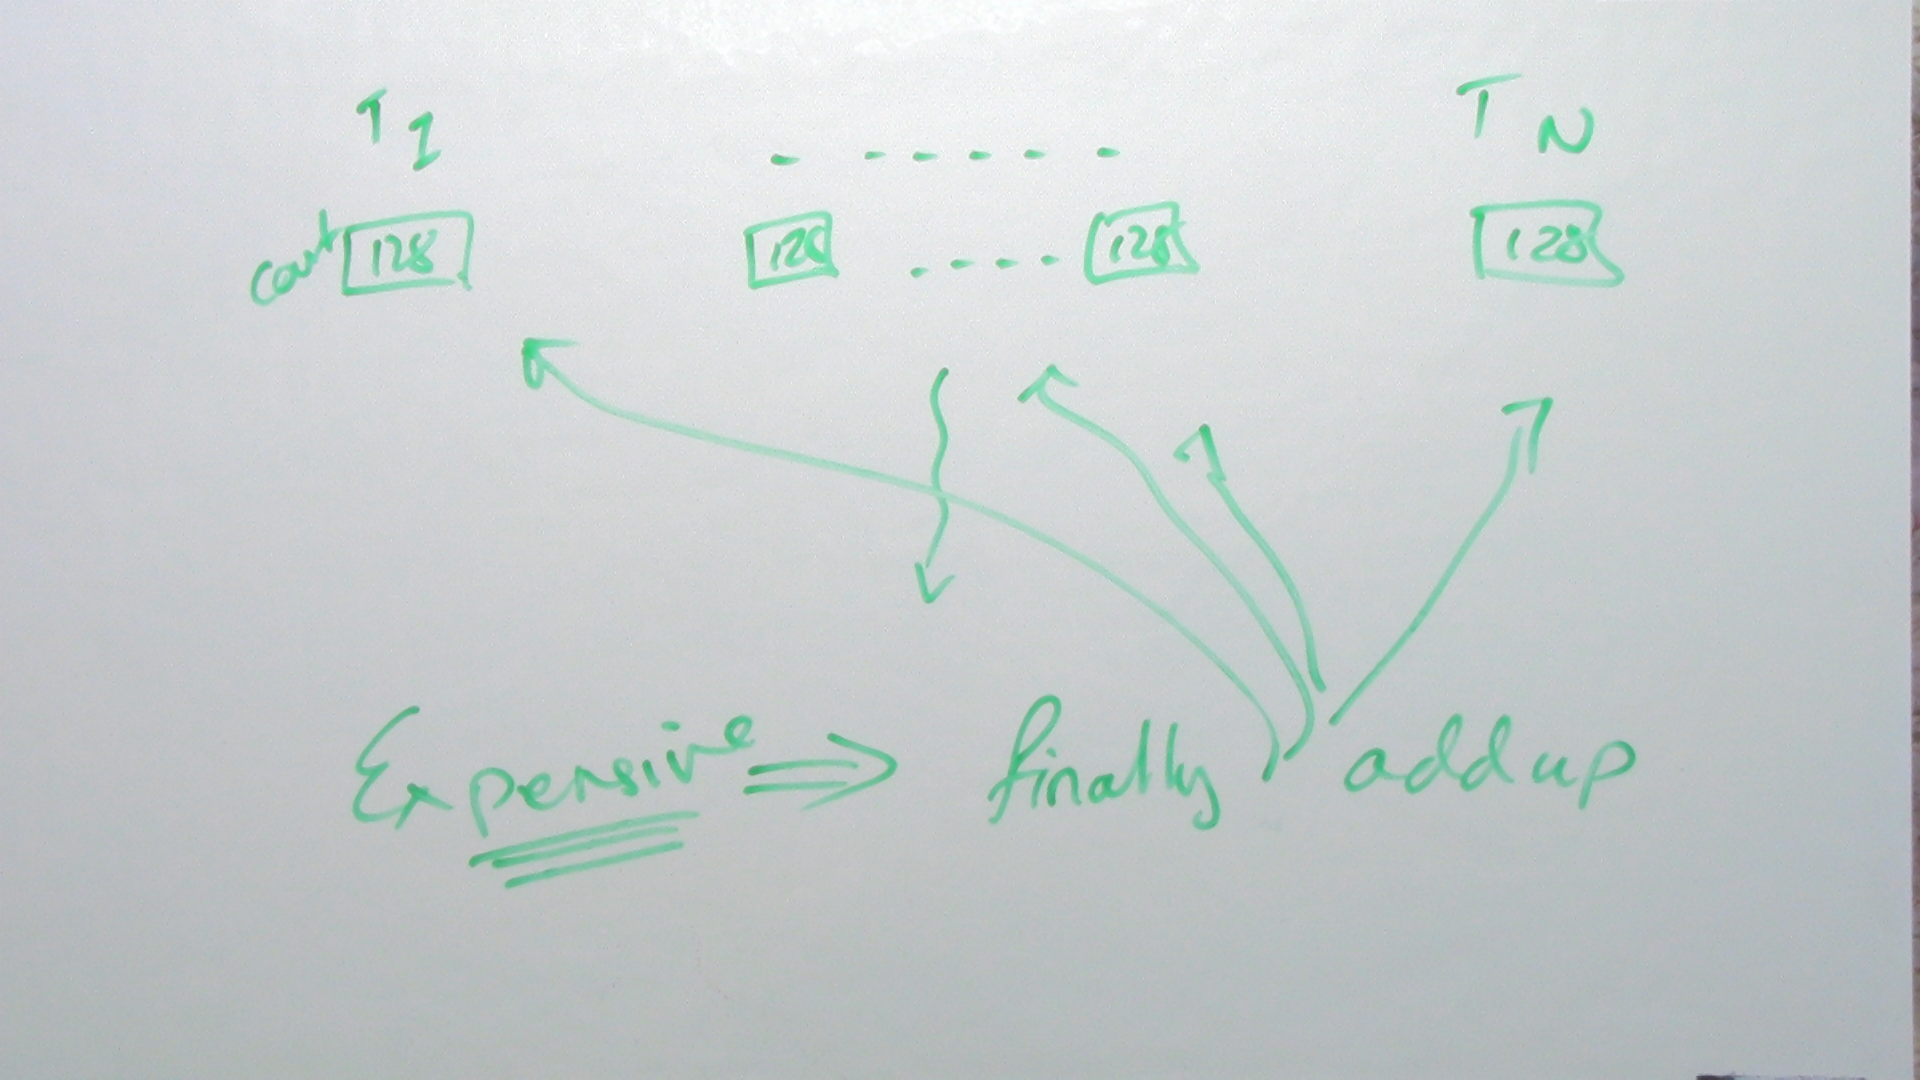 T1 - - - - - - TN
count 128 128 .... 128 128
Expensive => finally add up